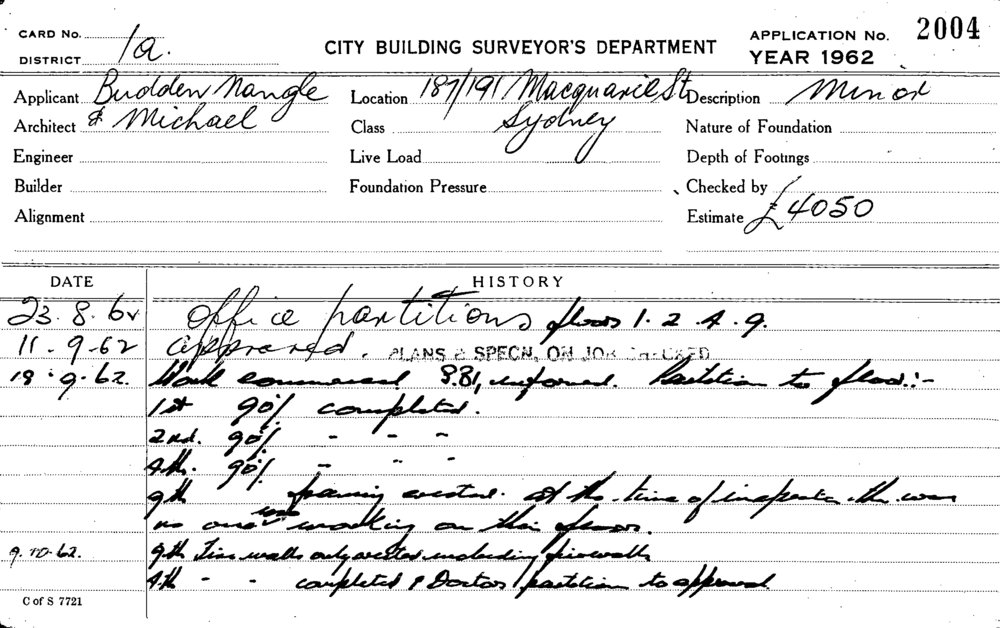 CARD No. 1a.
DISTRICT
CITY BUILDING SURVEYOR'S DEPARTMENT
APPLICATION No. 2004
YEAR 1962
Applicant Budden Nangle
Architect & Michael
Engineer
Builder
Alignment
Location 187/191 Macquarie St
Class Sydney
Live Load
Foundation Pressure
Description Minor
Nature of Foundation
Depth of Footings
Checked by
Estimate £4050
DATE HISTORY
23.8.62 Office partitions floors 1.2.4.9.
11.9.62 approved. PLANS & SPECN, ON JOB CHECKED
18.9.62. Work commenced informed. Partition to floor:-
1st 90% completed.
2nd. 90% - - -
4th. 90% - - -
9th framing erected. At the time of inspection there was
no one was working on this floor.
9.10.62. 9th walls only erected including firewalls
4th - - completed & Doctors partition to approval
C of S 7721